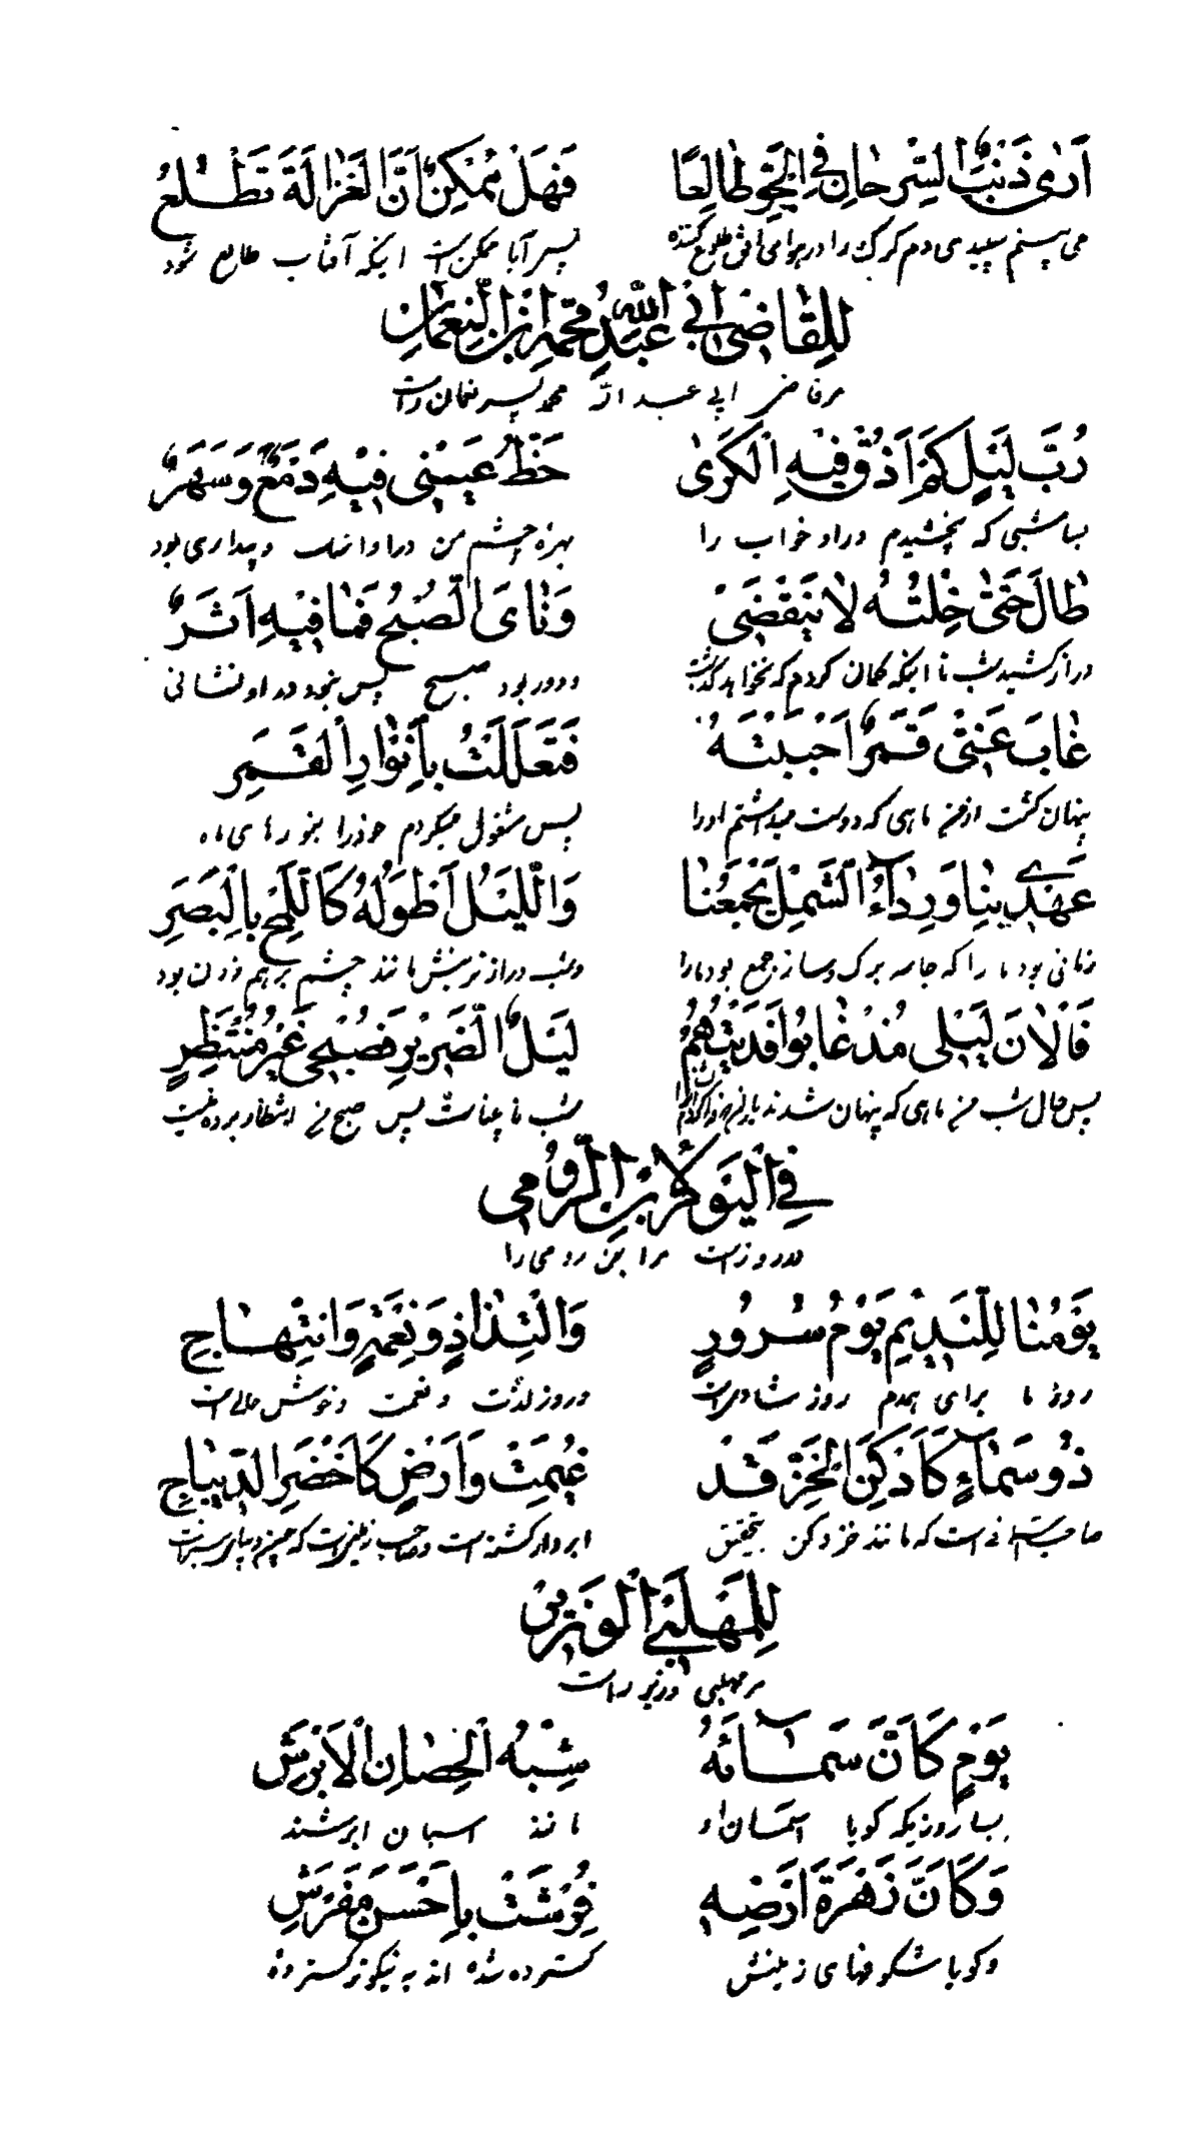 اَرٰى ذَنَبَ السِّرْحٰانِ فِى الْجَوِّ طٰالِعًا فَهَلْ مُمْكِنٌ اَنَّ الْغَزٰالَةَ تَطْلَعُ
می بینم سپیدی دم کرک را در هوا طلوع کننده پس آیا ممکن است اینکه آفتاب طالع شود
لِلْقٰاضى اَبى عَبْدِ اللّٰهِ مُحَمَّدِ ابْنِ النُّعْمٰانِ
مرقاضی ابی عبد الله محمد پسر نعمان راست
رُبَّ لَيْلٍ لَمْ اَذُقْ فيهِ الْكَرىٰ حَظُّ عَيْنى فيهِ دَمْعٌ وَسَهَرٌ
بسا شبی که نچشیدم در او خواب را بهره چشم من در او اشک و بیداری بود
طٰالَ حَتّىٰ خِلْتُهُ لٰا يَنْقَضى وَنٰاىَ الصُّبْحُ فَمٰا فيهِ اَثَرٌ
دراز کشید شب تا اینکه کمان کردم که نخواهد کذشت و دور بود صبح پس نبود در او نشانی
غٰابَ عَنّى قَمَرٌ اَحْبَبْتَهُ فَتَعَلَّلْتُ بِاَنْوٰارِ الْقَمَرِ
پنهان کشت از من ماهی که دوست میداشتم او را پس مشغول میکردم خود را بنورهای ماه
عَهْدى بِنٰا وَرِدٰاءُ الشَّمْلِ يَجْمَعُنٰا وَاللَّيْلُ اَطْوَلُهُ كَاللَّمْحِ بِالْبَصَرِ
زمانی بود ما را که جامه برک و ساز جمع بود ما را و شب درازترینش مانند چشم برهم زدن بود
فَالْاٰنَ لَيْلى مُذْ غٰابُوا فَدَيْتُهُمُ لَيْلُ الضَّريرِ فَصُبْحى غَيْرُ مُنْتَظَرٍ
پس حال شب من ماهی که پنهان شدند شب نابیناست پس صبح من انتظار برده نیست
فِى الْيَوْمِ لِابْنِ الرُّومى
در روز است مرابن رومی را
يَوْمُنٰا لِلنَّديمِ يَوْمُ سُرُورٍ وَالْتِذٰاذٍ وَنِعْمَةٍ وَابْتِهٰاجٍ
روز ما برای همدم روز شادیست و روز لذت و نعمت و خوش حالی است
ذُو سَمٰاءٍ كَاَدْكَنِ الْخَزِّ قَدْ غُيِّمَتْ وَاَرْضٍ كَاَخْضَرِ الدّيبٰاجِ
صاحب آسمانی است که مانند خز دکن بتحقیق ابردار کشته است و صاحب زمینی است که
لِلْمُهَلَّبى الْوَزيرِ
مر مهلبی وزیر راست
يَوْمٍ كَاَنَّ سَمٰائَهُ شِبْهُ الْحِصٰانِ الْاَبْرَشِ
بسا روزیکه کویا آسمان او مانند اسبان ابرشند
وَكَاَنَّ زَهْرَةَ اَرْضِهِ فُرِشَتْ بِاَحْسَنِ مَفْرَشٍ
و کویا شکوفهای زمینش کسترده شده اند به نیکوتر کستردنی